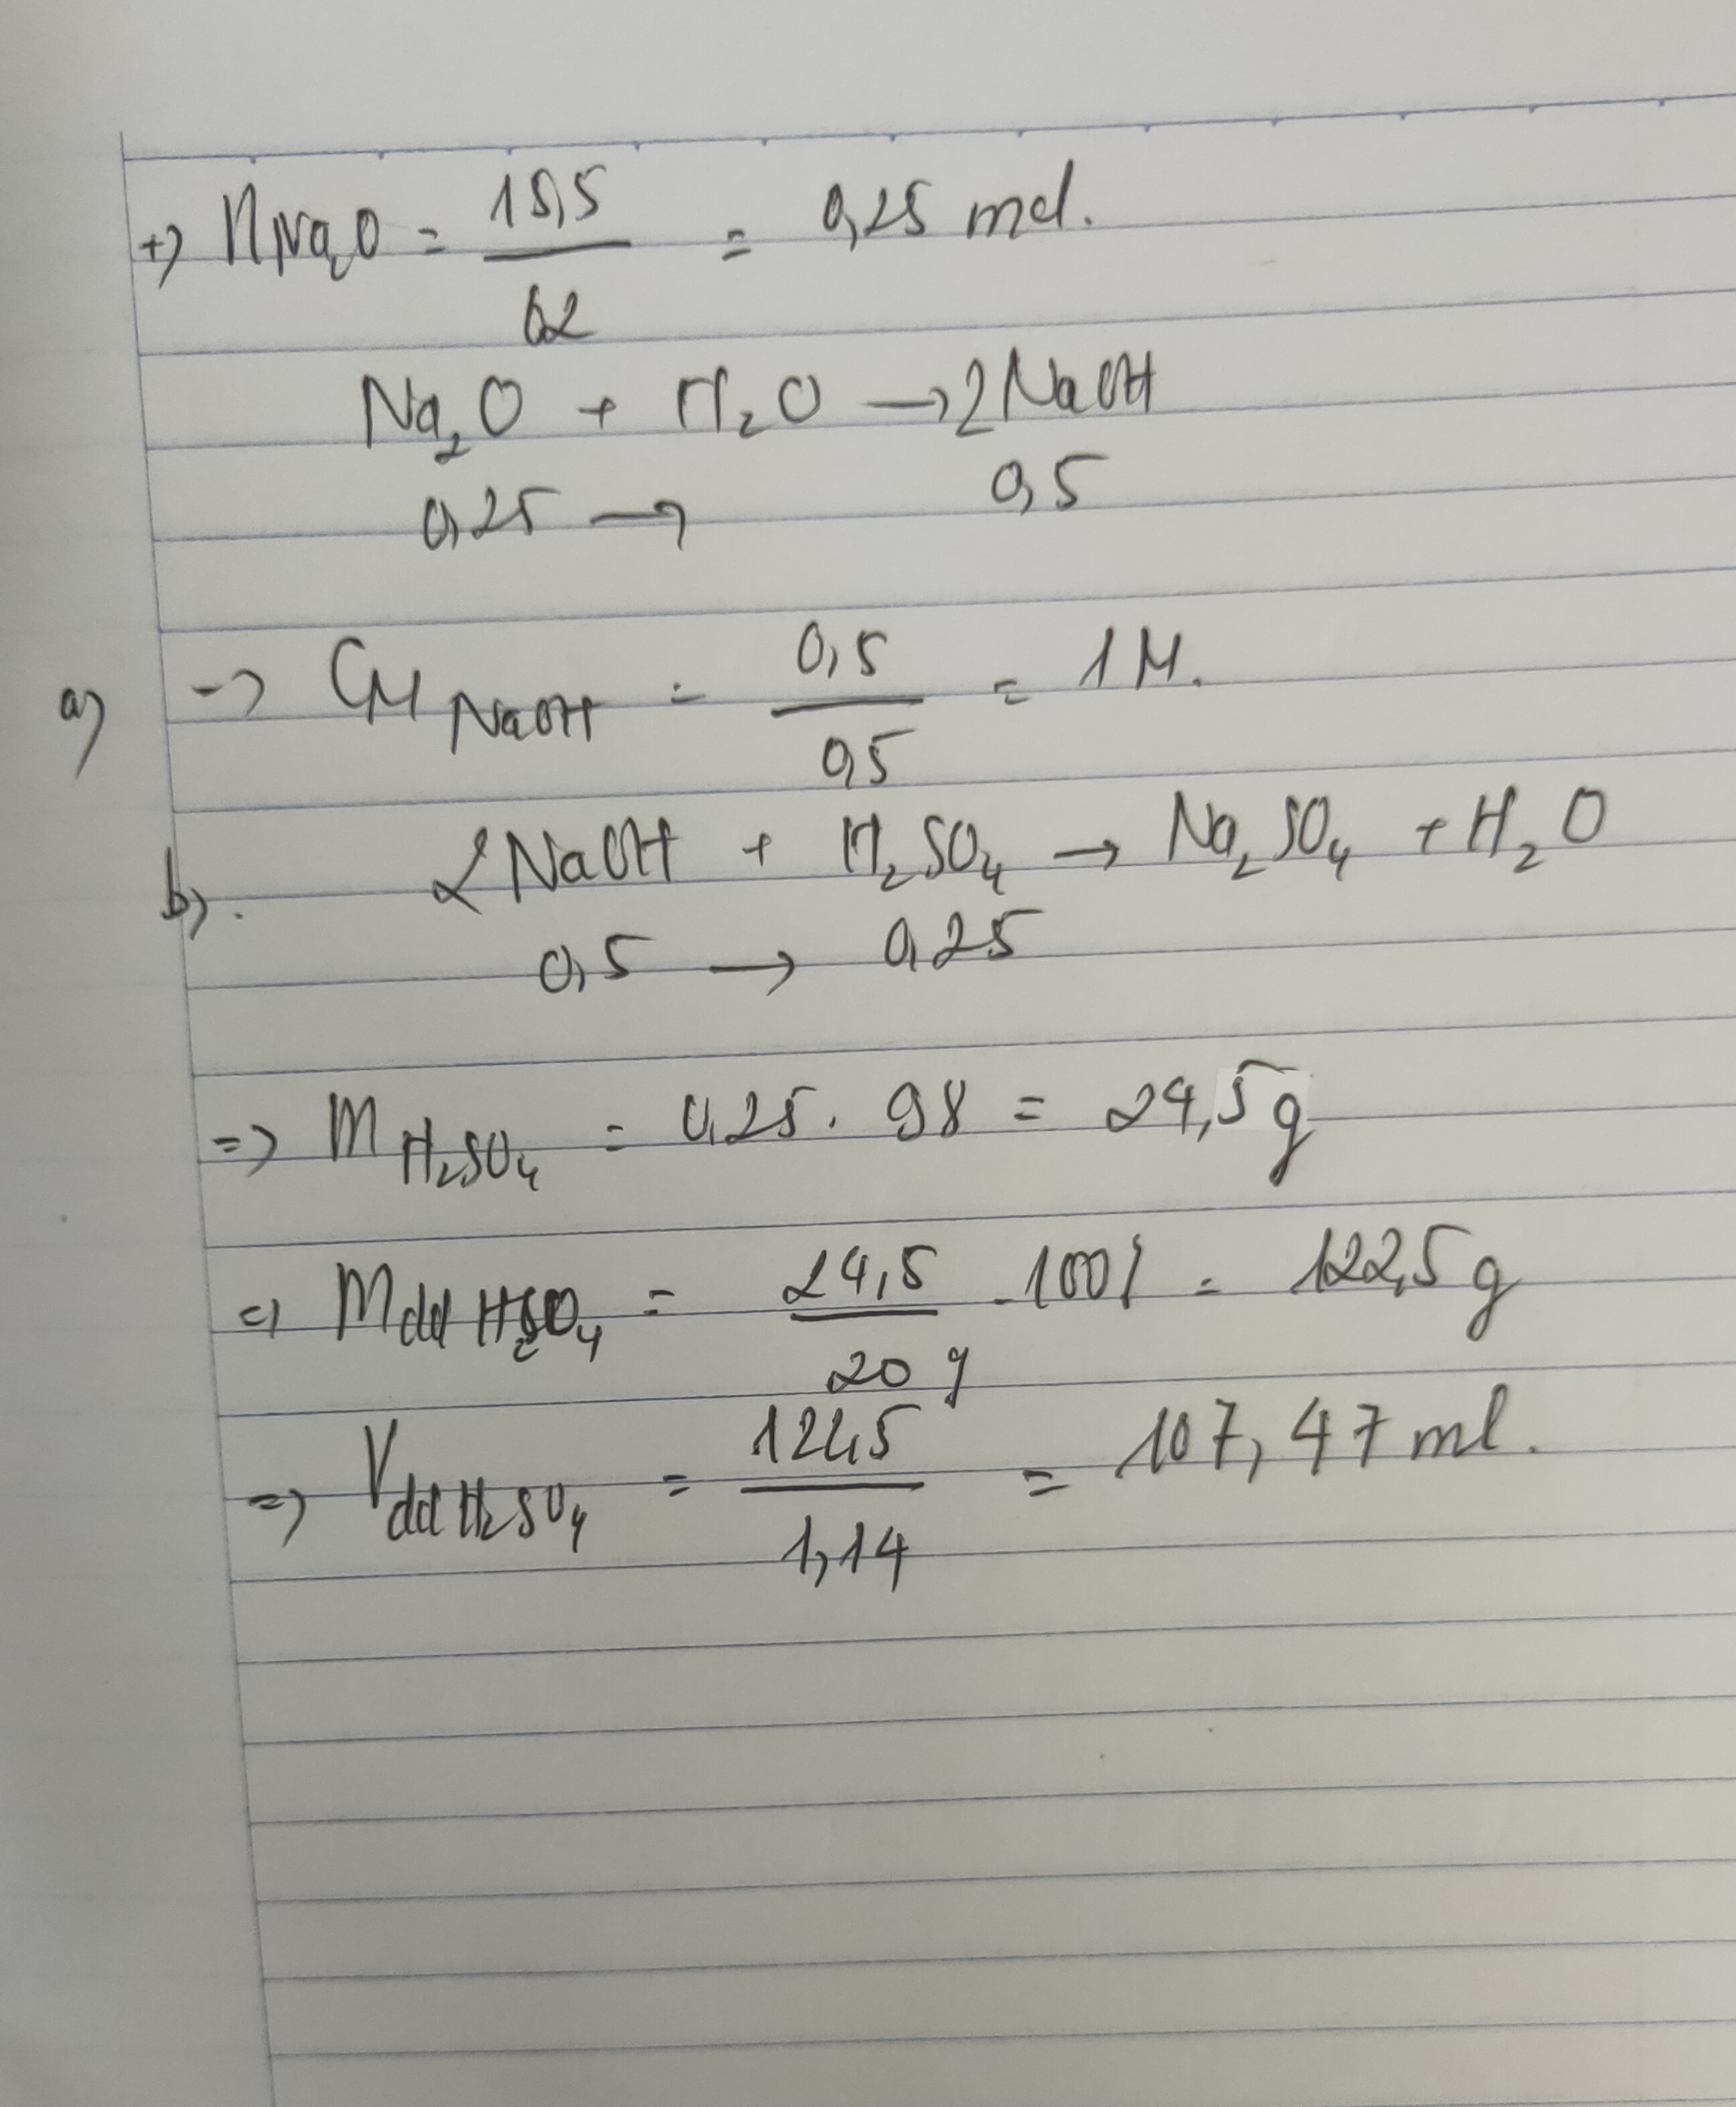 +) nNa₂O = 15,5 / 62 = 0,25 mol.
Na₂O + H₂O → 2NaOH
0,25 → 0,5
a) → CM NaOH = 0,5 / 0,5 = 1M.
b). 2NaOH + H₂SO₄ → Na₂SO₄ + H₂O
0,5 → 0,25
=> mH₂SO₄ = 0,25 . 98 = 24,5g
=> mdd H₂SO₄ = 24,5 / 20% . 100% = 122,5g
=> Vdd H₂SO₄ = 122,5 / 1,14 = 107,47 ml.